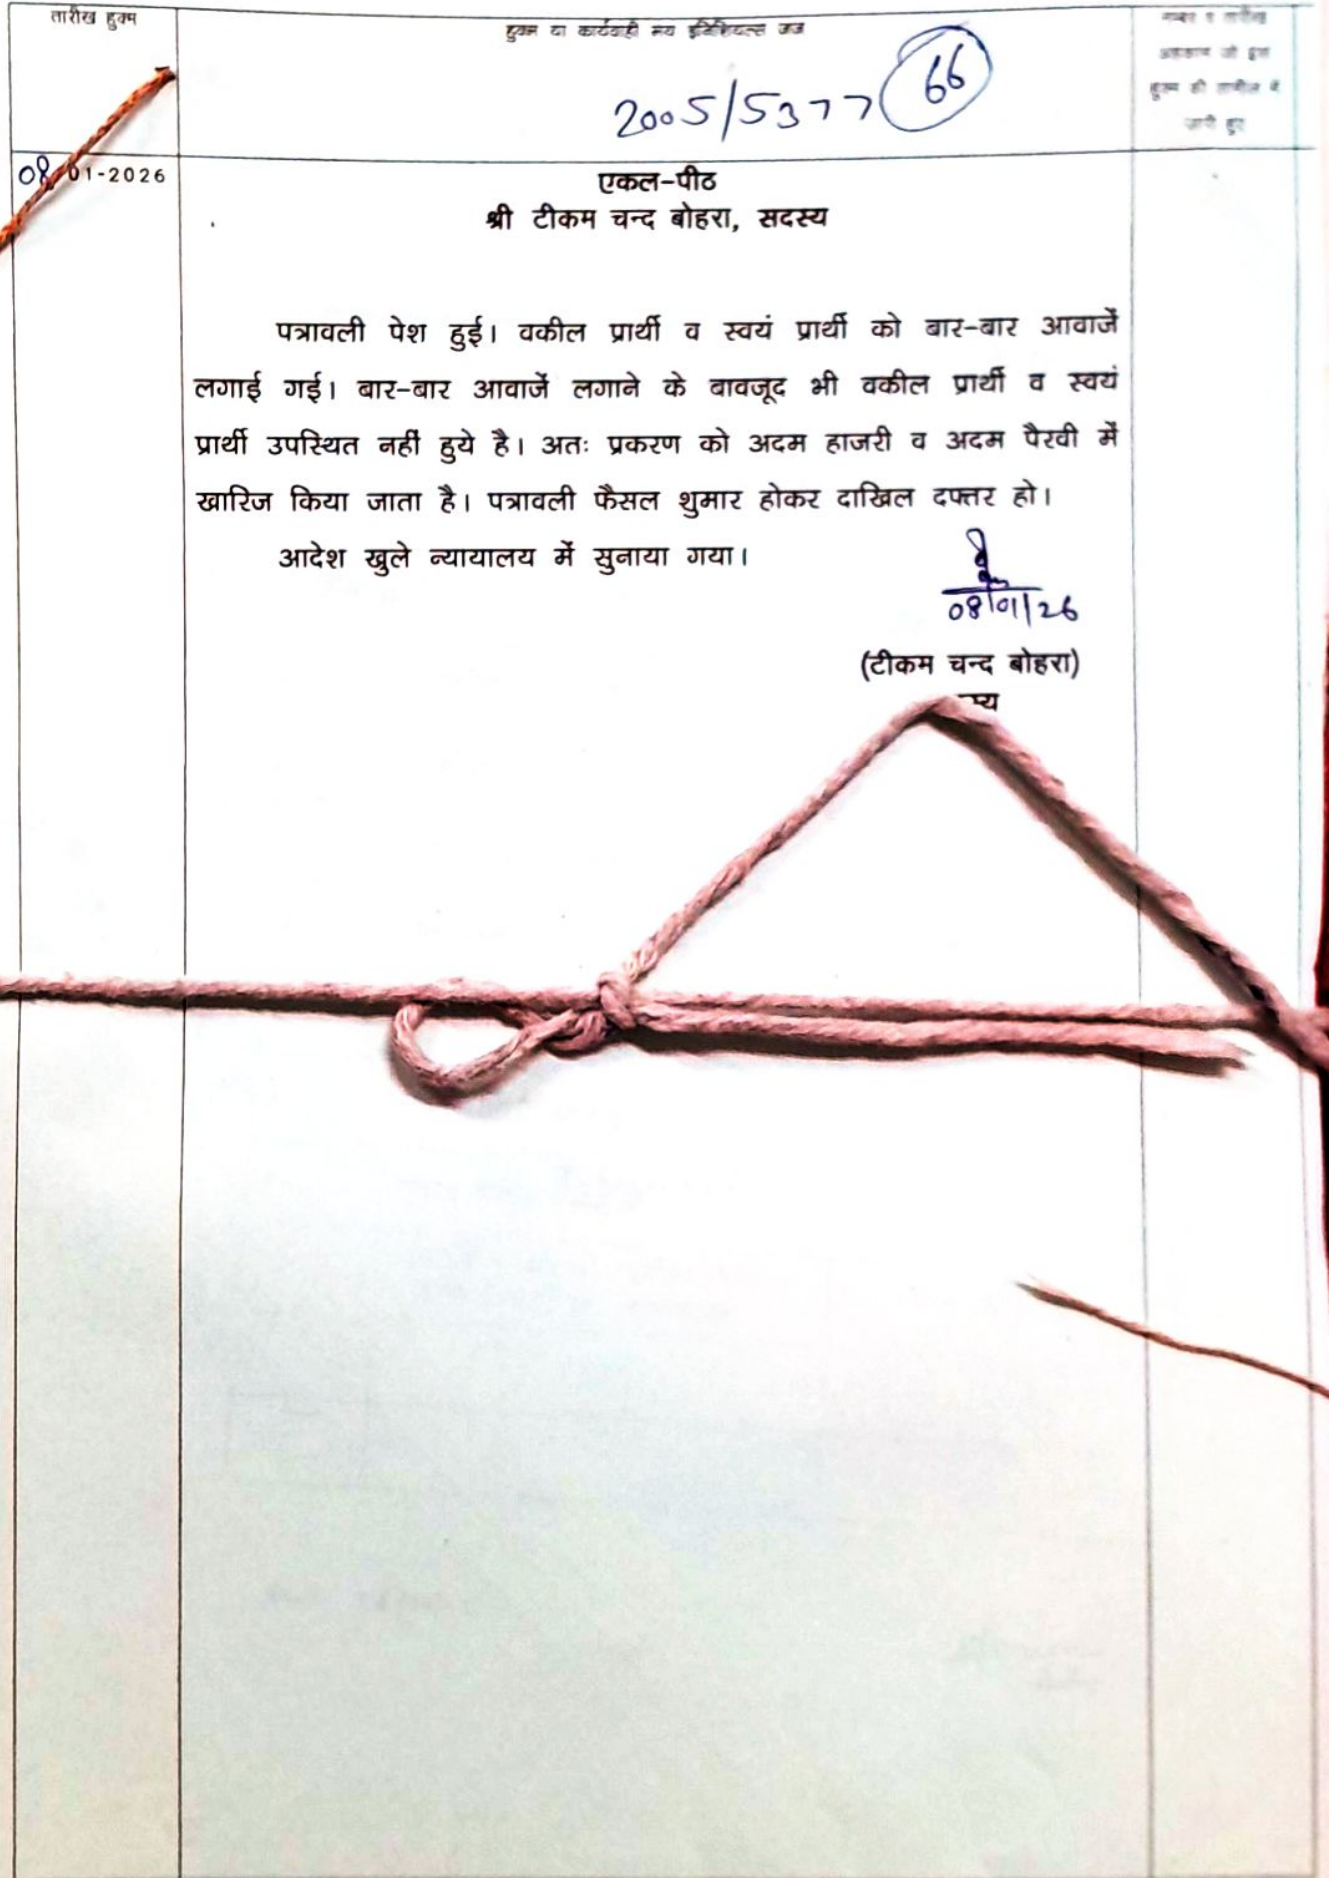 तारीख हुक्म
हुक्म या कार्यवाही मय इनिशियल्स जज
नम्बर व तारीख
अहकाम जो इस
हुक्म की तामील में
जारी हुए
2005/5377 66
08-01-2026
एकल-पीठ
श्री टीकम चन्द बोहरा, सदस्य
पत्रावली पेश हुई। वकील प्रार्थी व स्वयं प्रार्थी को बार-बार आवाजें
लगाई गई। बार-बार आवाजें लगाने के बावजूद भी वकील प्रार्थी व स्वयं
प्रार्थी उपस्थित नहीं हुये है। अतः प्रकरण को अदम हाजरी व अदम पैरवी में
खारिज किया जाता है। पत्रावली फैसल शुमार होकर दाखिल दफ्तर हो।
आदेश खुले न्यायालय में सुनाया गया।
08/01/26
(टीकम चन्द बोहरा)